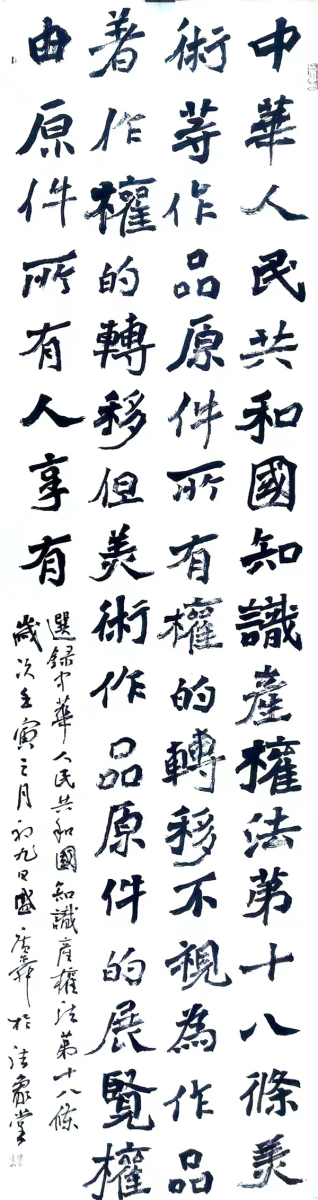 中華人民共和國知識產權法第十八條美
術等作品原件所有權的轉移不視為作品
著作權的轉移但美術作品原件的展覽權
由原件所有人享有
選録中華人民共和國知識產權法第十八條
歲次壬寅三月初九日盛 於法象堂